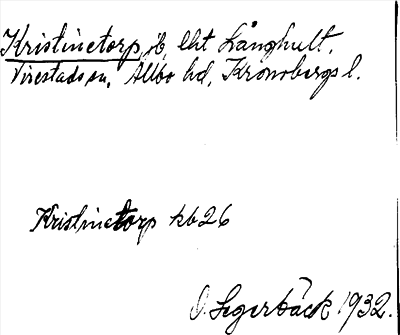 Kristinetorp, tp, lht Långhult,
Virestads sn, Allbo hd, Kronobergs l.
Kristinetorp kb 26
O. Segerbäck 1932.